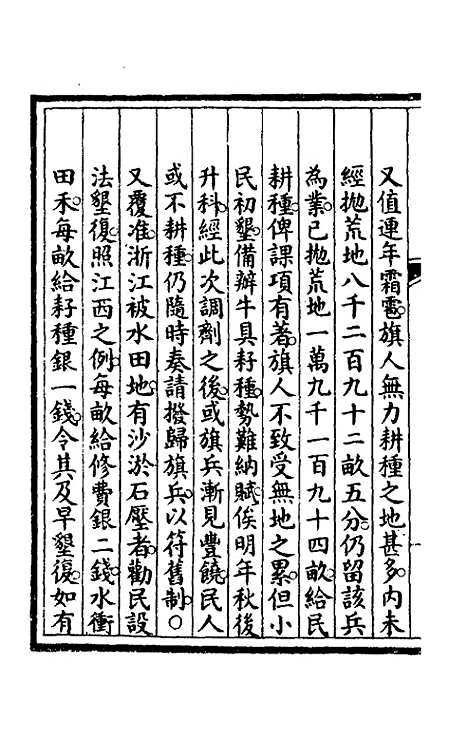 又值連年霜雹。旗人無力耕種之地甚多。內未
經拋荒地八千二百九十二畝五分。仍留該兵
為業。已拋荒地一萬九千一百九十四畝。給民
耕種。俾課項有著。旗人不致受無地之累。但小
民初墾。備辦牛具籽種。勢難納賦。俟明年秋後
升科。經此次調劑之後。或旗兵漸見豐饒。民人
或不耕種。仍隨時奏請撥歸旗兵。以符舊制。○
又覆准。浙江被水田地。有沙淤石壓者。勸民設
法墾復。照江西之例。每畝給修費銀二錢。水衝
田禾。每畝給籽種銀一錢。令其及早墾復。如有